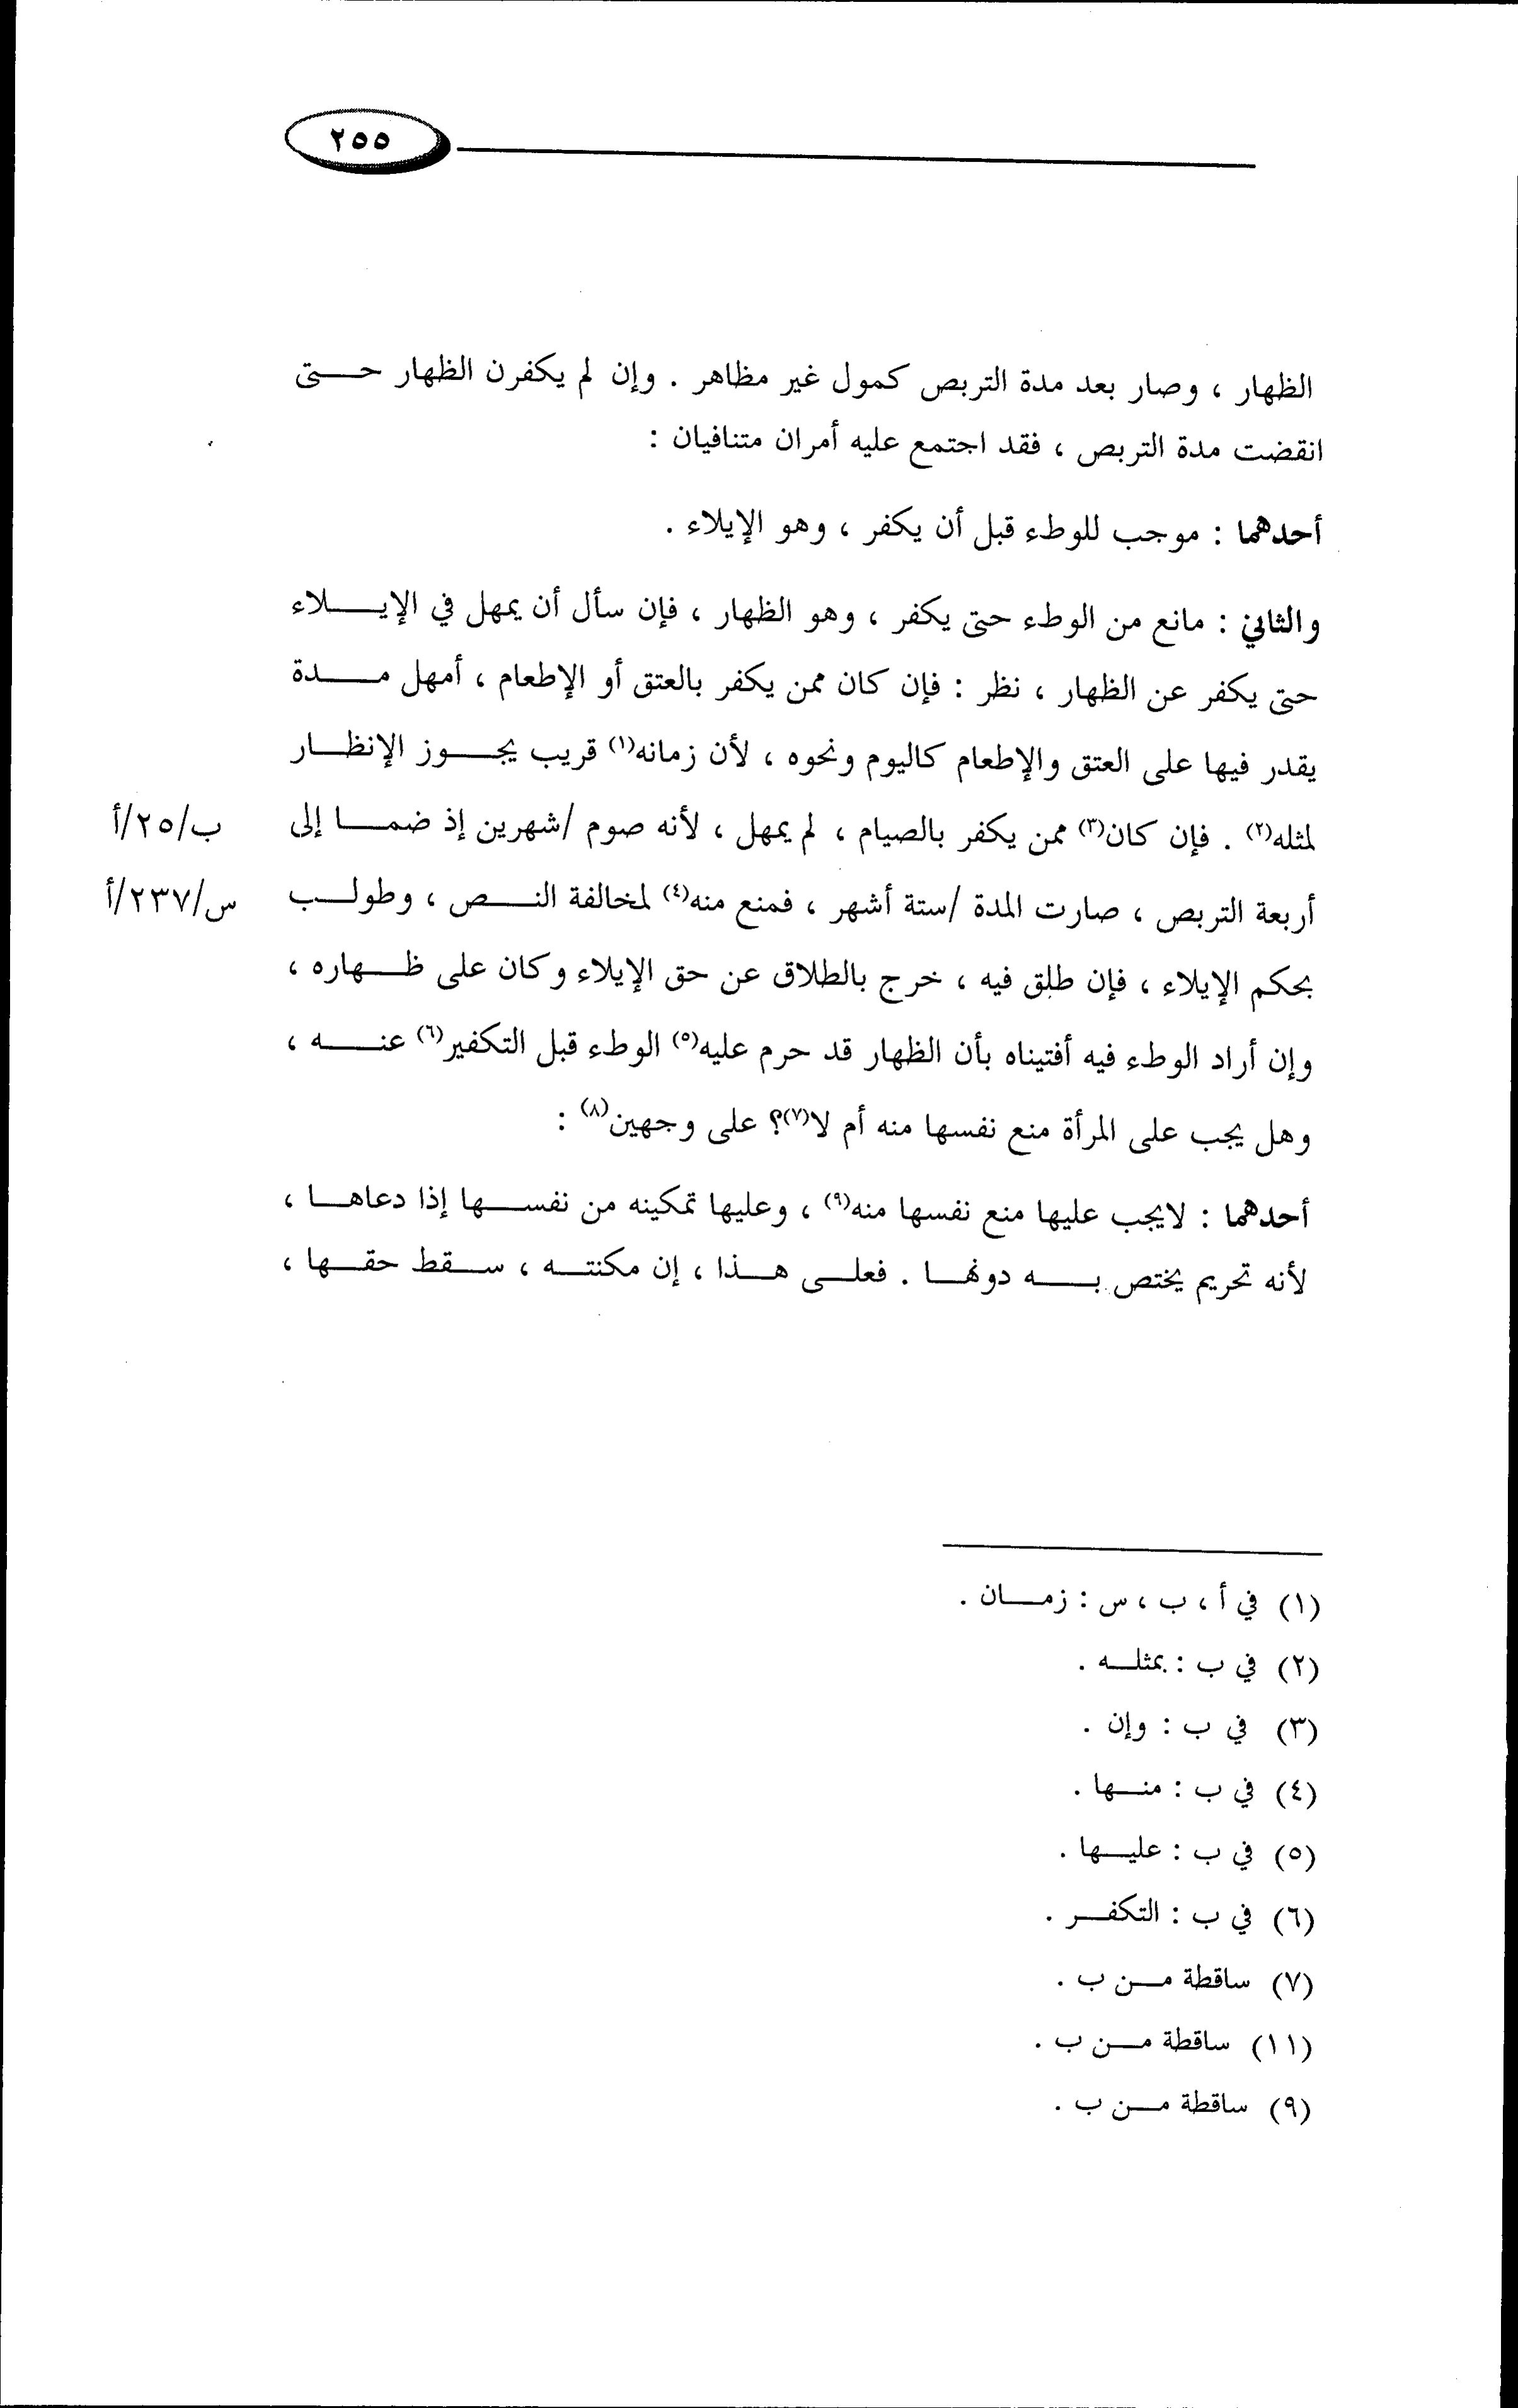 ٢٥٥
الظهار ، وصار بعد مدة التربص كمول غير مظاهر . وإن لم يكفرن الظهار حتى
انقضت مدة التربص ، فقد اجتمع عليه أمران متنافيان :
أحدهما : موجب للوطء قبل أن يكفر ، وهو الإيلاء .
والثاني : مانع من الوطء حتى يكفر ، وهو الظهار ، فإن سأل أن يمهل في الإيلاء
حتى يكفر عن الظهار ، نظر : فإن كان ممن يكفر بالعتق أو الإطعام ، أمهل مدة
يقدر فيها على العتق والإطعام كاليوم ونحوه ، لأن زمانه(١) قريب يجوز الإنظار
لمثله(٢) . فإن كان(٣) ممن يكفر بالصيام ، لم يمهل ، لأنه صوم /شهرين إذ ضما إلى ب/٢٥/أ
أربعة التربص ، صارت المدة /ستة أشهر ، فمنع منه(٤) لمخالفة النص ، وطولب س/٢٣٧/أ
بحكم الإيلاء ، فإن طلق فيه ، خرج بالطلاق عن حق الإيلاء وكان على ظهاره ،
وإن أراد الوطء فيه أفتيناه بأن الظهار قد حرم عليه(٥) الوطء قبل التكفير(٦) عنه ،
وهل يجب على المرأة منع نفسها منه أم لا(٧)؟ على وجهين(٨) :
أحدهما : لايجب عليها منع نفسها منه(٩) ، وعليها تمكينه من نفسها إذا دعاها ،
لأنه تحريم يختص به دونها . فعلى هذا ، إن مكنته ، سقط حقها ،
(١) في أ ، ب ، س : زمان .
(٢) في ب : بمثله .
(٣) في ب : وإن .
(٤) في ب : منها .
(٥) في ب : عليها .
(٦) في ب : التكفر .
(٧) ساقطة من ب .
(١١) ساقطة من ب .
(٩) ساقطة من ب .